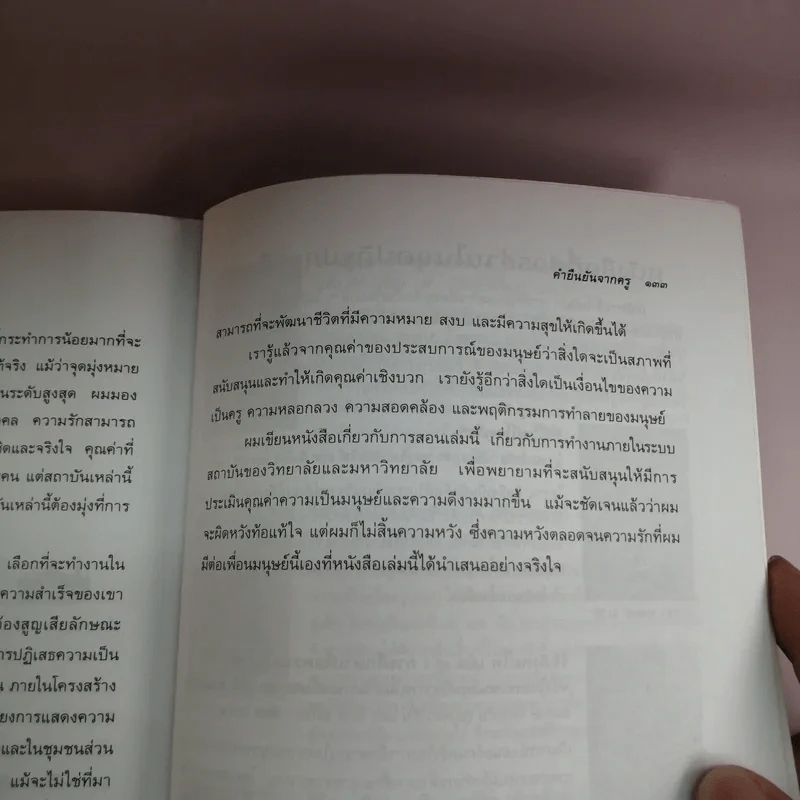 กระทำการน้อยมากที่จะ
จริง แม้ว่าจุดมุ่งหมาย
นระดับสูงสุด ผมมอง
คล ความรักสามารถ
ชิดและจริงใจ คุณค่าที่
คน แต่สถาบันเหล่านี้
ันเหล่านี้ต้องมุ่งที่การ
เลือกที่จะทำงานใน
ความสำเร็จของเขา
้องสูญเสียลักษณะ
ารปฏิเสธความเป็น
น ภายในโครงสร้าง
ยงการแสดงความ
และในชุมชนส่วน
แม้จะไม่ใช่ที่มา
คำยืนยันจากครู ๑๓๓
สามารถที่จะพัฒนาชีวิตที่มีความหมาย สงบ และมีความสุขให้เกิดขึ้นได้
เรารู้แล้วจากคุณค่าของประสบการณ์ของมนุษย์ว่าสิ่งใดจะเป็นสภาพที่
สนับสนุนและทำให้เกิดคุณค่าเชิงบวก เรายังรู้อีกว่าสิ่งใดเป็นเงื่อนไขของความ
เป็นครู ความหลอกลวง ความสอดคล้อง และพฤติกรรมการทำลายของมนุษย์
ผมเขียนหนังสือเกี่ยวกับการสอนเล่มนี้ เกี่ยวกับการทำงานภายในระบบ
สถาบันของวิทยาลัยและมหาวิทยาลัย เพื่อพยายามที่จะสนับสนุนให้มีการ
ประเมินคุณค่าความเป็นมนุษย์และความดีงามมากขึ้น แม้จะชัดเจนแล้วว่าผม
จะผิดหวังท้อแท้ใจ แต่ผมก็ไม่สิ้นความหวัง ซึ่งความหวังตลอดจนความรักที่ผม
มีต่อเพื่อนมนุษย์นี้เองที่หนังสือเล่มนี้ได้นำเสนออย่างจริงใจ